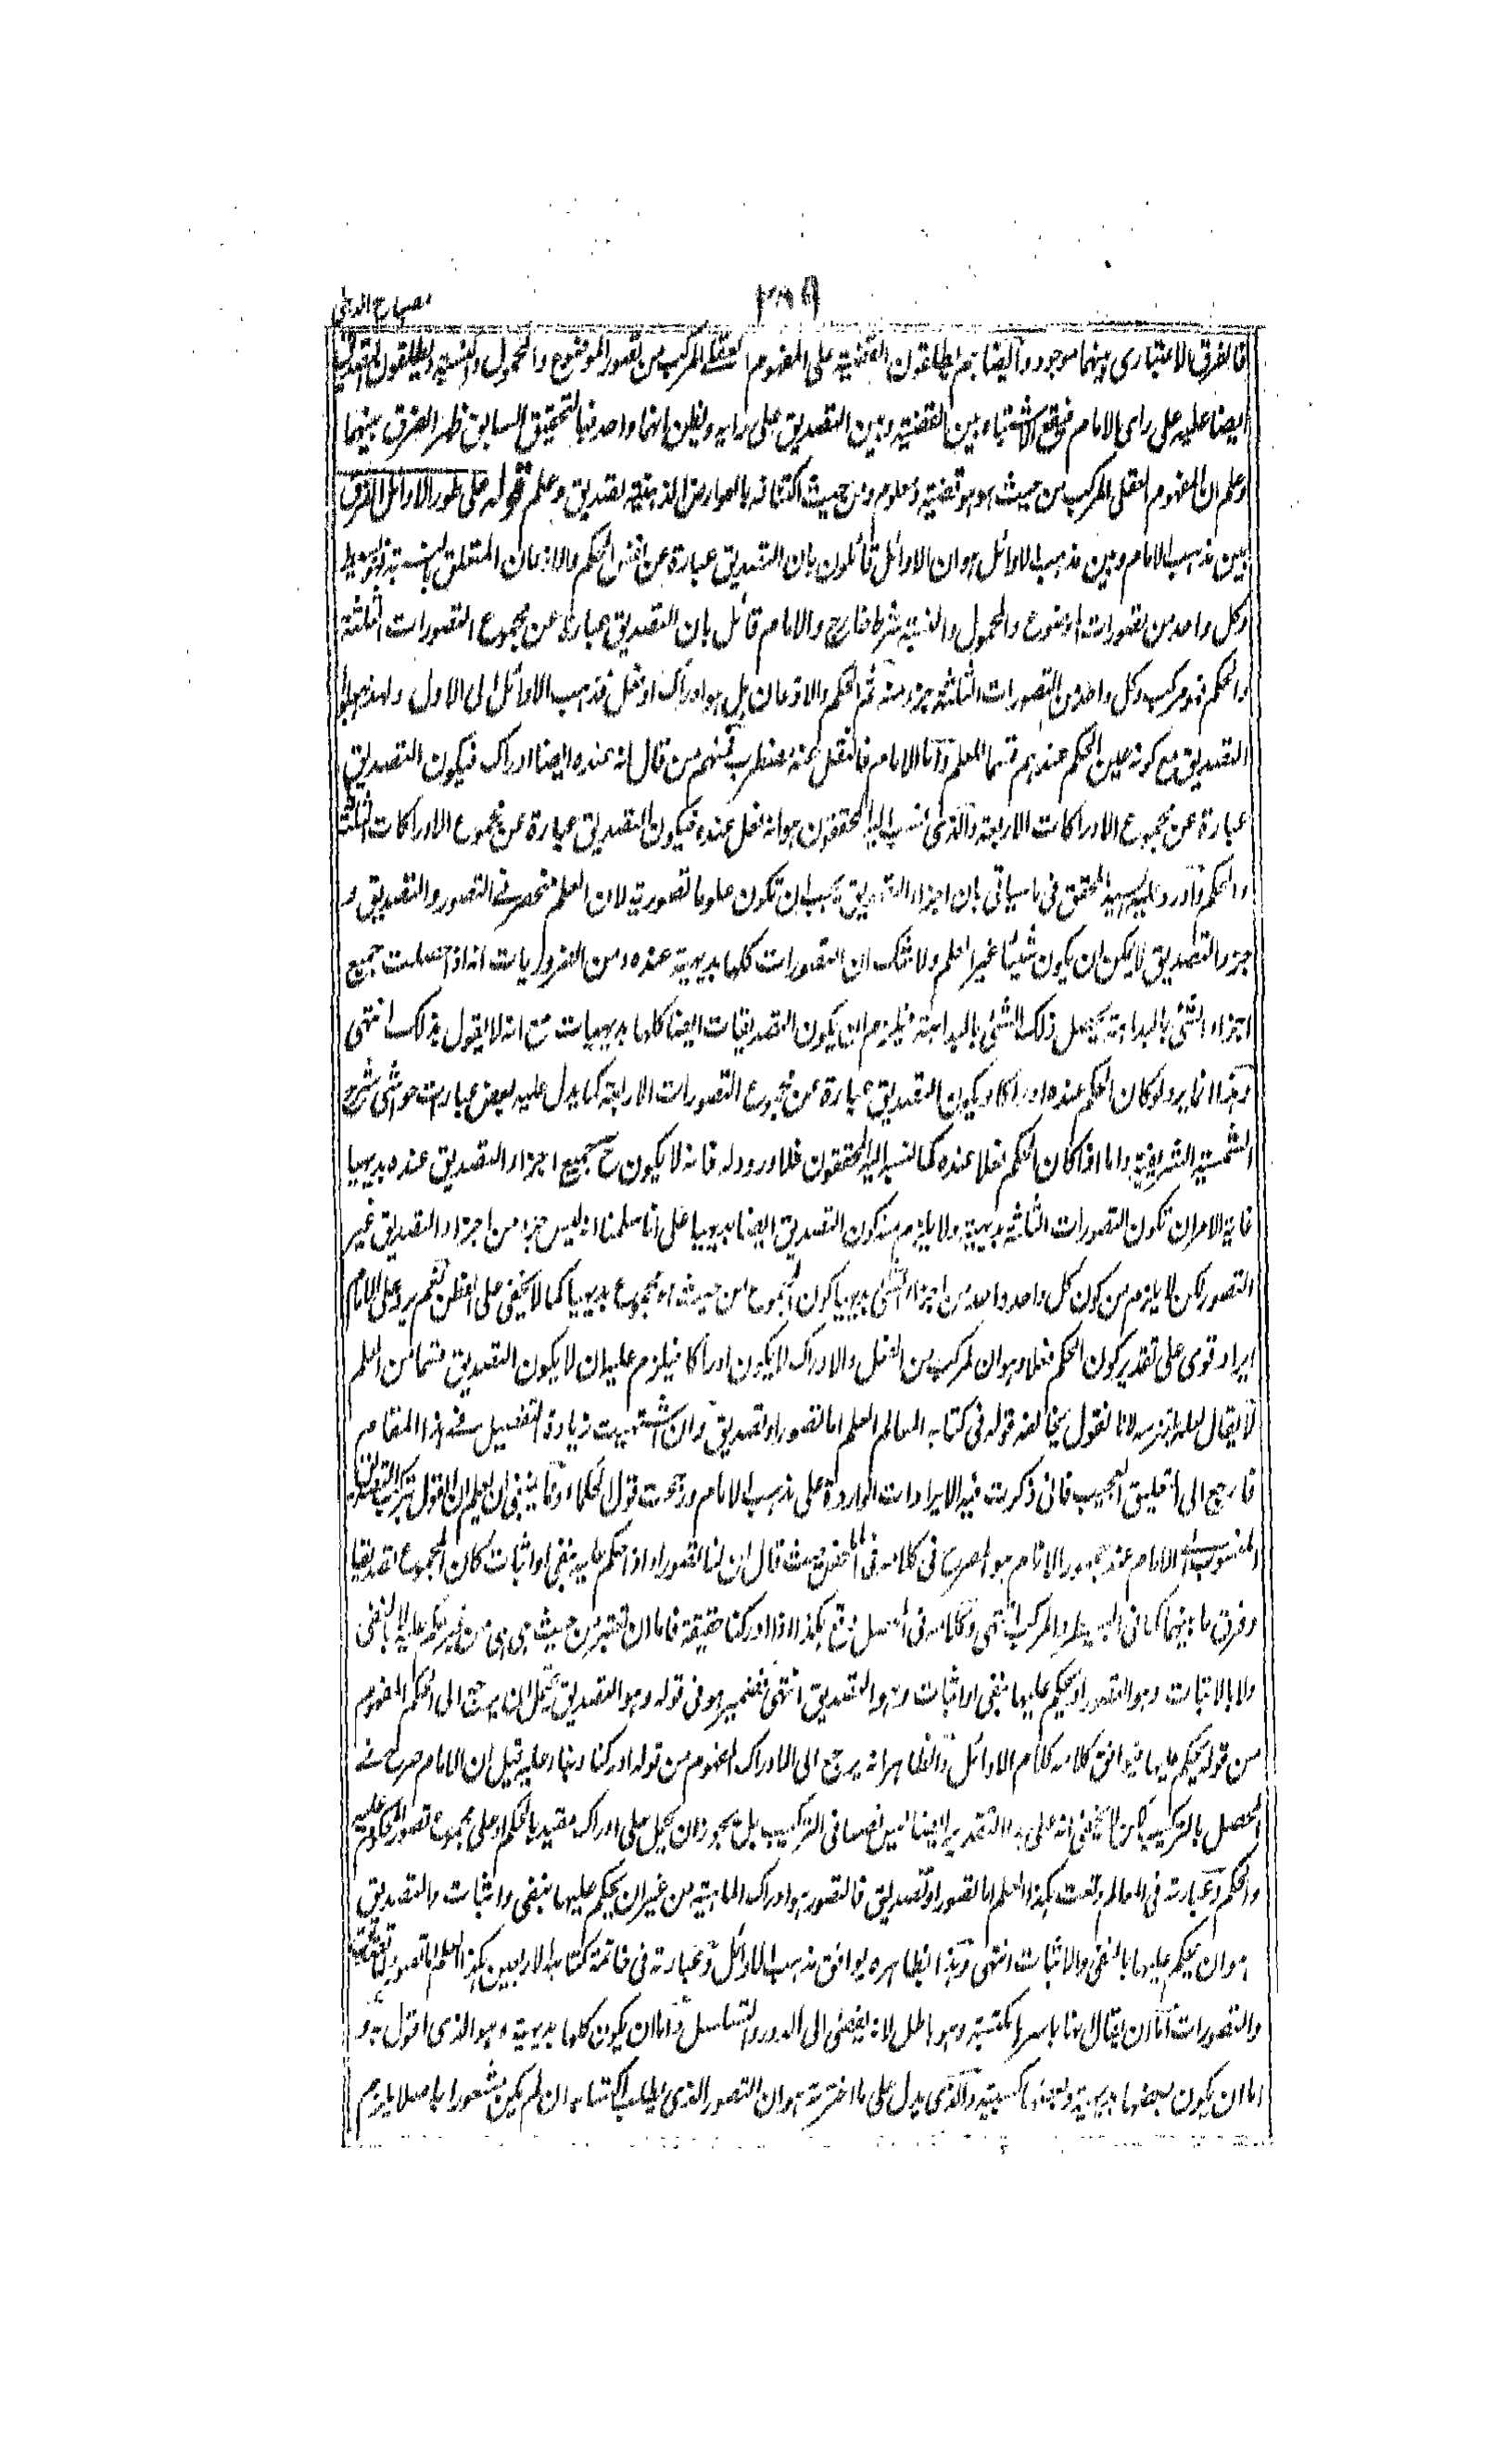 مصباح الدجى
فالفرق الاعتبارى بينهما موجود وايضا هم يطلقون القضية على المفهوم العقلى المركب من تصور الموضوع والمحمول والنسبة ويطلقون التصديق
ايضا عليه على راى الامام فوقع الاشتباه بين القضية وبين التصديق على رايه ويظن انهما واحد فبالتحقيق السابق ظهر الفرق بينهما
وعلم ان المفهوم العقلى المركب من حيث هو هو قضية ومعلوم ومن حيث اكتنافه بالعوارض الذهنية تصديق وعلم قوله على طور الاوائل الفرق
بين مذهب الامام وبين مذهب الاوائل هو ان الاوائل قائلون بان التصديق عبارة عن نفس الحكم والاذعان المتعلق بالنسبة
وكل واحد من تصورات الموضوع والمحمول والنسبة شرط خارج والامام قائل بان التصديق عبارة عن مجموع التصورات الثلثة
والحكم فهو مركب وكل واحد من التصورات الثلثة جزء منه ثم الحكم والاذعان هل هو ادراك او فعل فذهب الاوائل الى الاول ولهذا جعلوا
التصديق مع كونه عين الحكم عندهم قسما للعلم واما الامام فالنقل عنه مضطرب فمنهم من قال انه عنده ايضا ادراك فيكون التصديق
عبارة عن مجموع الادراكات الاربعة والذى نسب اليه المحققون هو انه فعل عنده فيكون التصديق عبارة عن مجموع الادراكات الثلث
والحكم واورد عليه السيد المحقق فى ما سياتى بان اجزاء التصديق يجب ان تكون علوما تصورية لان العلم منحصر فى التصور والتصديق و
جزء التصديق لا يمكن ان يكون شيئا غير العلم ولا شك ان التصورات كلها بديهية عنده ومن الضروريات انه اذا حصلت جميع
اجزاء الشئ بالبداهة يحصل ذلك الشئ بالبداهة فيلزم ان يكون التصديقات ايضا كلها بديهيات مع انه لا يقول بذلك انتهى
وهذا انما يرد لو كان الحكم عنده ادراكا ويكون التصديق عبارة عن مجموع التصورات الاربعة كما يدل عليه بعض عبارات حواشى شرح
الشمسية الشريفية واما اذا كان الحكم فعلا عنده كما نسبه اليه المحققون فلا ورود له فانه لا يكون ح جميع اجزاء التصديق عنده بديهيا
غاية الامر ان تكون التصورات الثلثة بديهية ولا يلزم منه كون التصديق ايضا بديهيا على انا سلمنا انه ليس جزء من اجزاء التصديق غير
التصور لكن لا يلزم من كون كل واحد واحد من اجزاء الشئ بديهيا كون المجموع من حيث هو مجموع بديهيا كما لا يخفى على الفطن نعم يرد على الامام
ايراد قوى على تقدير كون الحكم فعلا وهو ان المركب من الفعل والادراك لا يكون ادراكا فيلزم عليه ان لا يكون التصديق قسما من العلم
لا يقال لعله يلتزمه لانا نقول يخالفه قوله فى كتابه المعالم العلم اما تصور او تصديق وان اشتهيت زيادة التفصيل فى هذا المقام
فارجع الى التعليق العجيب فانى ذكرت فيه الايرادات الواردة على مذهب الامام ورجحت قول الحكماء وينبغى ان يعلم ان القول بتركب التصديق
المنسوب الى الامام عند جمهور الانام هو المصرح فى كلامه فى الملخص حيث قال ان لنا تصورا واذا حكم عليه بنفى او اثبات كان المجموع تصديقا
وفرق ما بينهما كما فى البسيط والمركب انتهى وكلامه فى المحصل وقع بكذا اذا ادركنا حقيقة فاما ان تعتبر من حيث هى هى من غير حكم عليها لا بالنفى
ولا بالاثبات وهو التصور او يحكم عليها بنفى او اثبات وهو التصديق انتهى فضمير هو فى قوله وهو التصديق يحتمل ان يرجع الى الحكم المفهوم
من قوله يحكم عليها فيوافق كلامه كلام الاوائل والظاهر انه يرجع الى الادراك المفهوم من قوله ادركنا وبناء عليه قيل ان الامام صرح فى
المحصل بالتركيب لكن لا يخفى انه على هذا التقدير ايضا ليس نصا فى التركيب بل يجوز ان يحمل على ادراك مقيد بالحكم او على مجموع تصور المحكوم عليه
والحكم وعبارته فى المعالم وقعت بكذا العلم اما تصور او تصديق فالتصور هو ادراك الماهية من غير ان يحكم عليها بنفى واثبات والتصديق
هو ان يحكم عليها بالنفى والاثبات انتهى وهذا بظاهره يوافق مذهب الاوائل وعبارته فى خاتمة كتابه الاربعين بكذا العلم اما تصور
والتصورات اما ان يقال انها باسرها مكتسبة وهو باطل لانه يفضى الى الدور والتسلسل واما ان يكون كلها بديهية وهو الذى اقول به و
اما ان يكون بعضها بديهية وبعضها كسبية والذى يدل على ما اخترته هو ان التصور الذى يطلب اكتسابه ان لم يكن مشعورا به اصلا يلزم